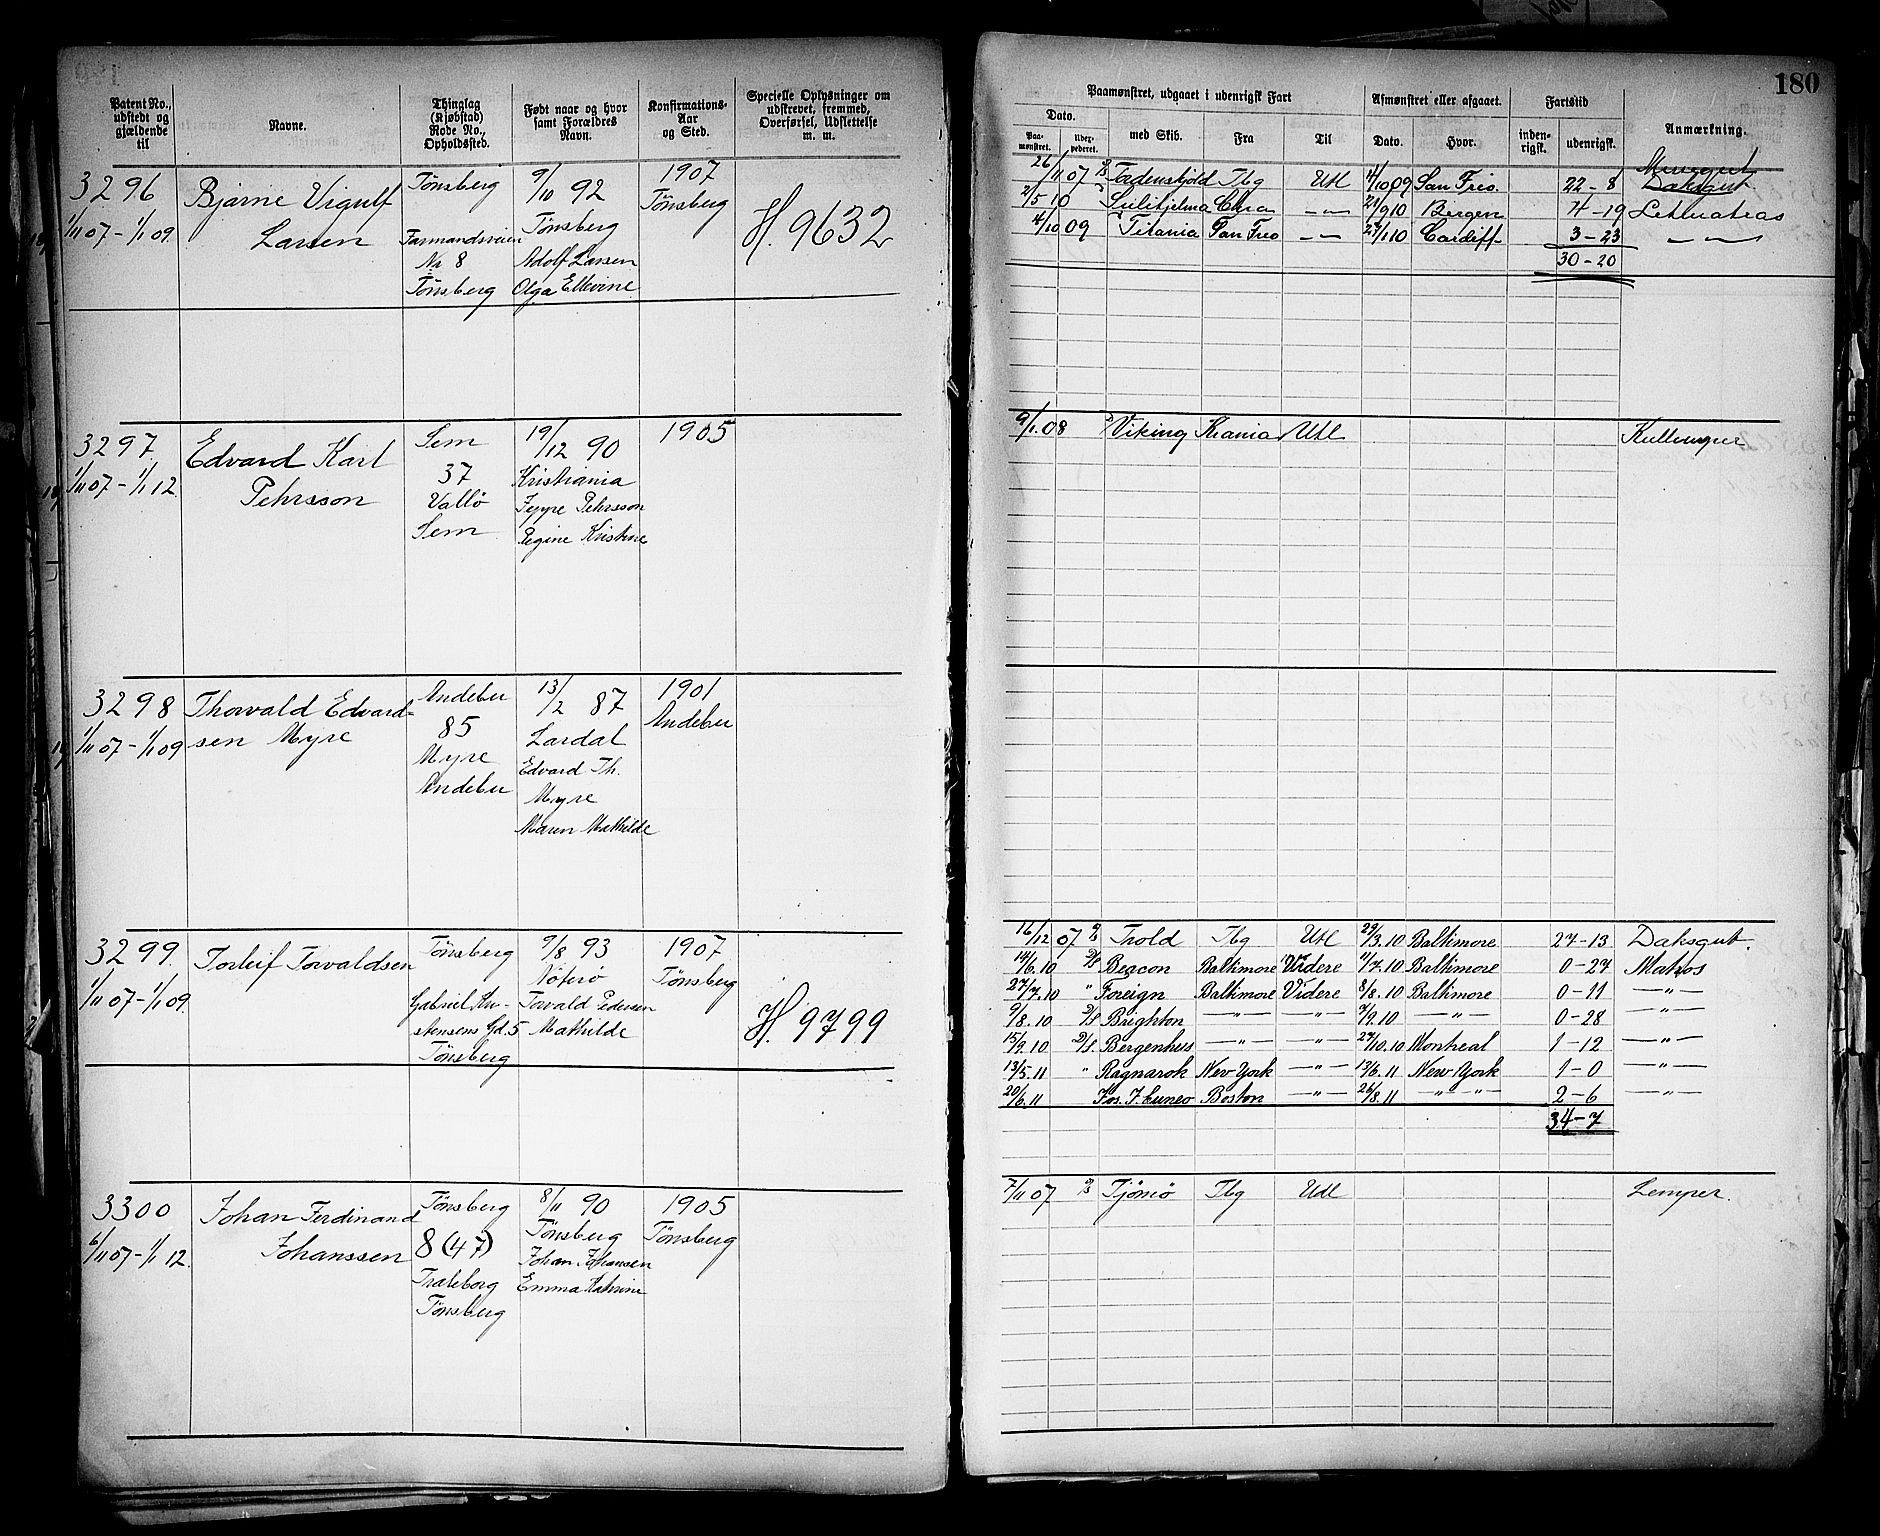 180
Patent No., udstedt og gjældende til
Navne.
Thinglag (Kjøbstad) Rode No., Opholdssted.
Født naar og hvor samt Forældres Navn.
Konfirmations-Aar og Sted.
Specielle Oplysninger om udskrevet, fremmed, Overførsel, Udslettelse m. m.
Paamønstret, udgaaet i udenrigsk Fart
Afmønstret eller afgaaet.
Fartstid
Anmærkning.
Dato.
Paa-mønstret.
med Skib.
Fra
Til
Dato.
Hvor.
inden-rigsk.
udenrigsk.
3296
1/11 07 - 1/1 09.
Bjarne Vigulf
Larsen
Tønsberg
Farmandsveien
Nr 8
Tønsberg
9/10 92
Tønsberg
Adolf Larsen
Olga Ellevine
1907
Tønsberg
H. 9632
26/11 07 Tordenskjold Tbg Udl 11/10 09 San Frco. 22-8 Dæksgut
2/5 10 Sulitjelma Chra -"- 21/9 10 Bergen 4-19 Letmatros
4/10 09 Titania San Frco -"- 27/1 10 Cardiff 3-23 -"-
30-20
3297
1/11 07 - 1/1 12
Edvard Karl
Pehrsson
Sem
37
Vallø
Sem
19/12 90
Kristiania
Jeppe Pehrsson
Regine Kristine
1905
9/1 08 Viking Krania Udl Kullemper
3298
1/11 07 - 1/1 09
Thorvald Edvard-
sen Myre
Andebu
85
Myre
Andebu
13/2 87
Lardal
Edvard Th.
Myre
Maren Mathilde
1901
Andebu
3299
1/11 07 - 1/1 09.
Torleif Torvaldsen
Tønsberg
Gabriel Kri-
stensens Gd. 5
Tønsberg
9/8 93
Nøterø
Torvald Pedersen
Mathilde
1907
Tønsberg
H. 9799
16/12 07 Trold Tbg Udl 29/3.10 Baltimore 27-13 Dæksgut.
14/6.10 D/S Beacon Baltimore Videre 11/7.10 Baltimore 0-27 Matros
27/7.10 " Foreign Baltimore Videre 8/8.10 Baltimore 0-11 -"-
9/8.10 D/S Brighton -"- -"- 7/9.10 -"- 0-28 -"-
15/9.10 D/S. Bergenhus -"- -"- 27/10.10 Montreal 1-12 -"-
13/5.11 " Ragnarok New York -"- 13/6.11 New York 1-0 -"-
20/6.11 Jos. J. Cuneo Boston -"- 26/8.11 -"- -"- 2-6 -"-
34-7
3300
6/11 07 - 1/1 12.
Johan Ferdinand
Johanssen
Tønsberg
8 (47)
Træleborg
Tønsberg
8/11 90
Tønsberg
Johan Johansen
Emma Katrine
1905
Tønsberg
7/11 07 Tjømø Tbg Udl Lemper.